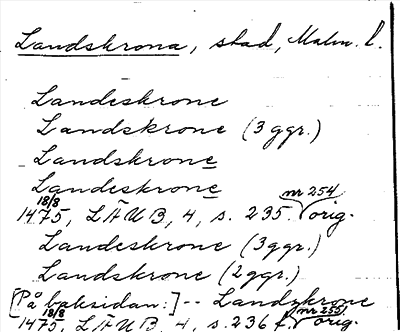 Landskrona, stad, Malm. l.
Landeskrone
Landzkrone (3 ggr.)
Landzkrone
Landeskrone
18/8 1475, LÄUB, 4, s. 235. nr 254, orig.
Landeskrone (3 ggr.)
Landzkrone (2 ggr.)
[På baksidan:] -- Landzkrone
18/8 1475, LÄUB, 4, s. 236 f. nr 255, orig.